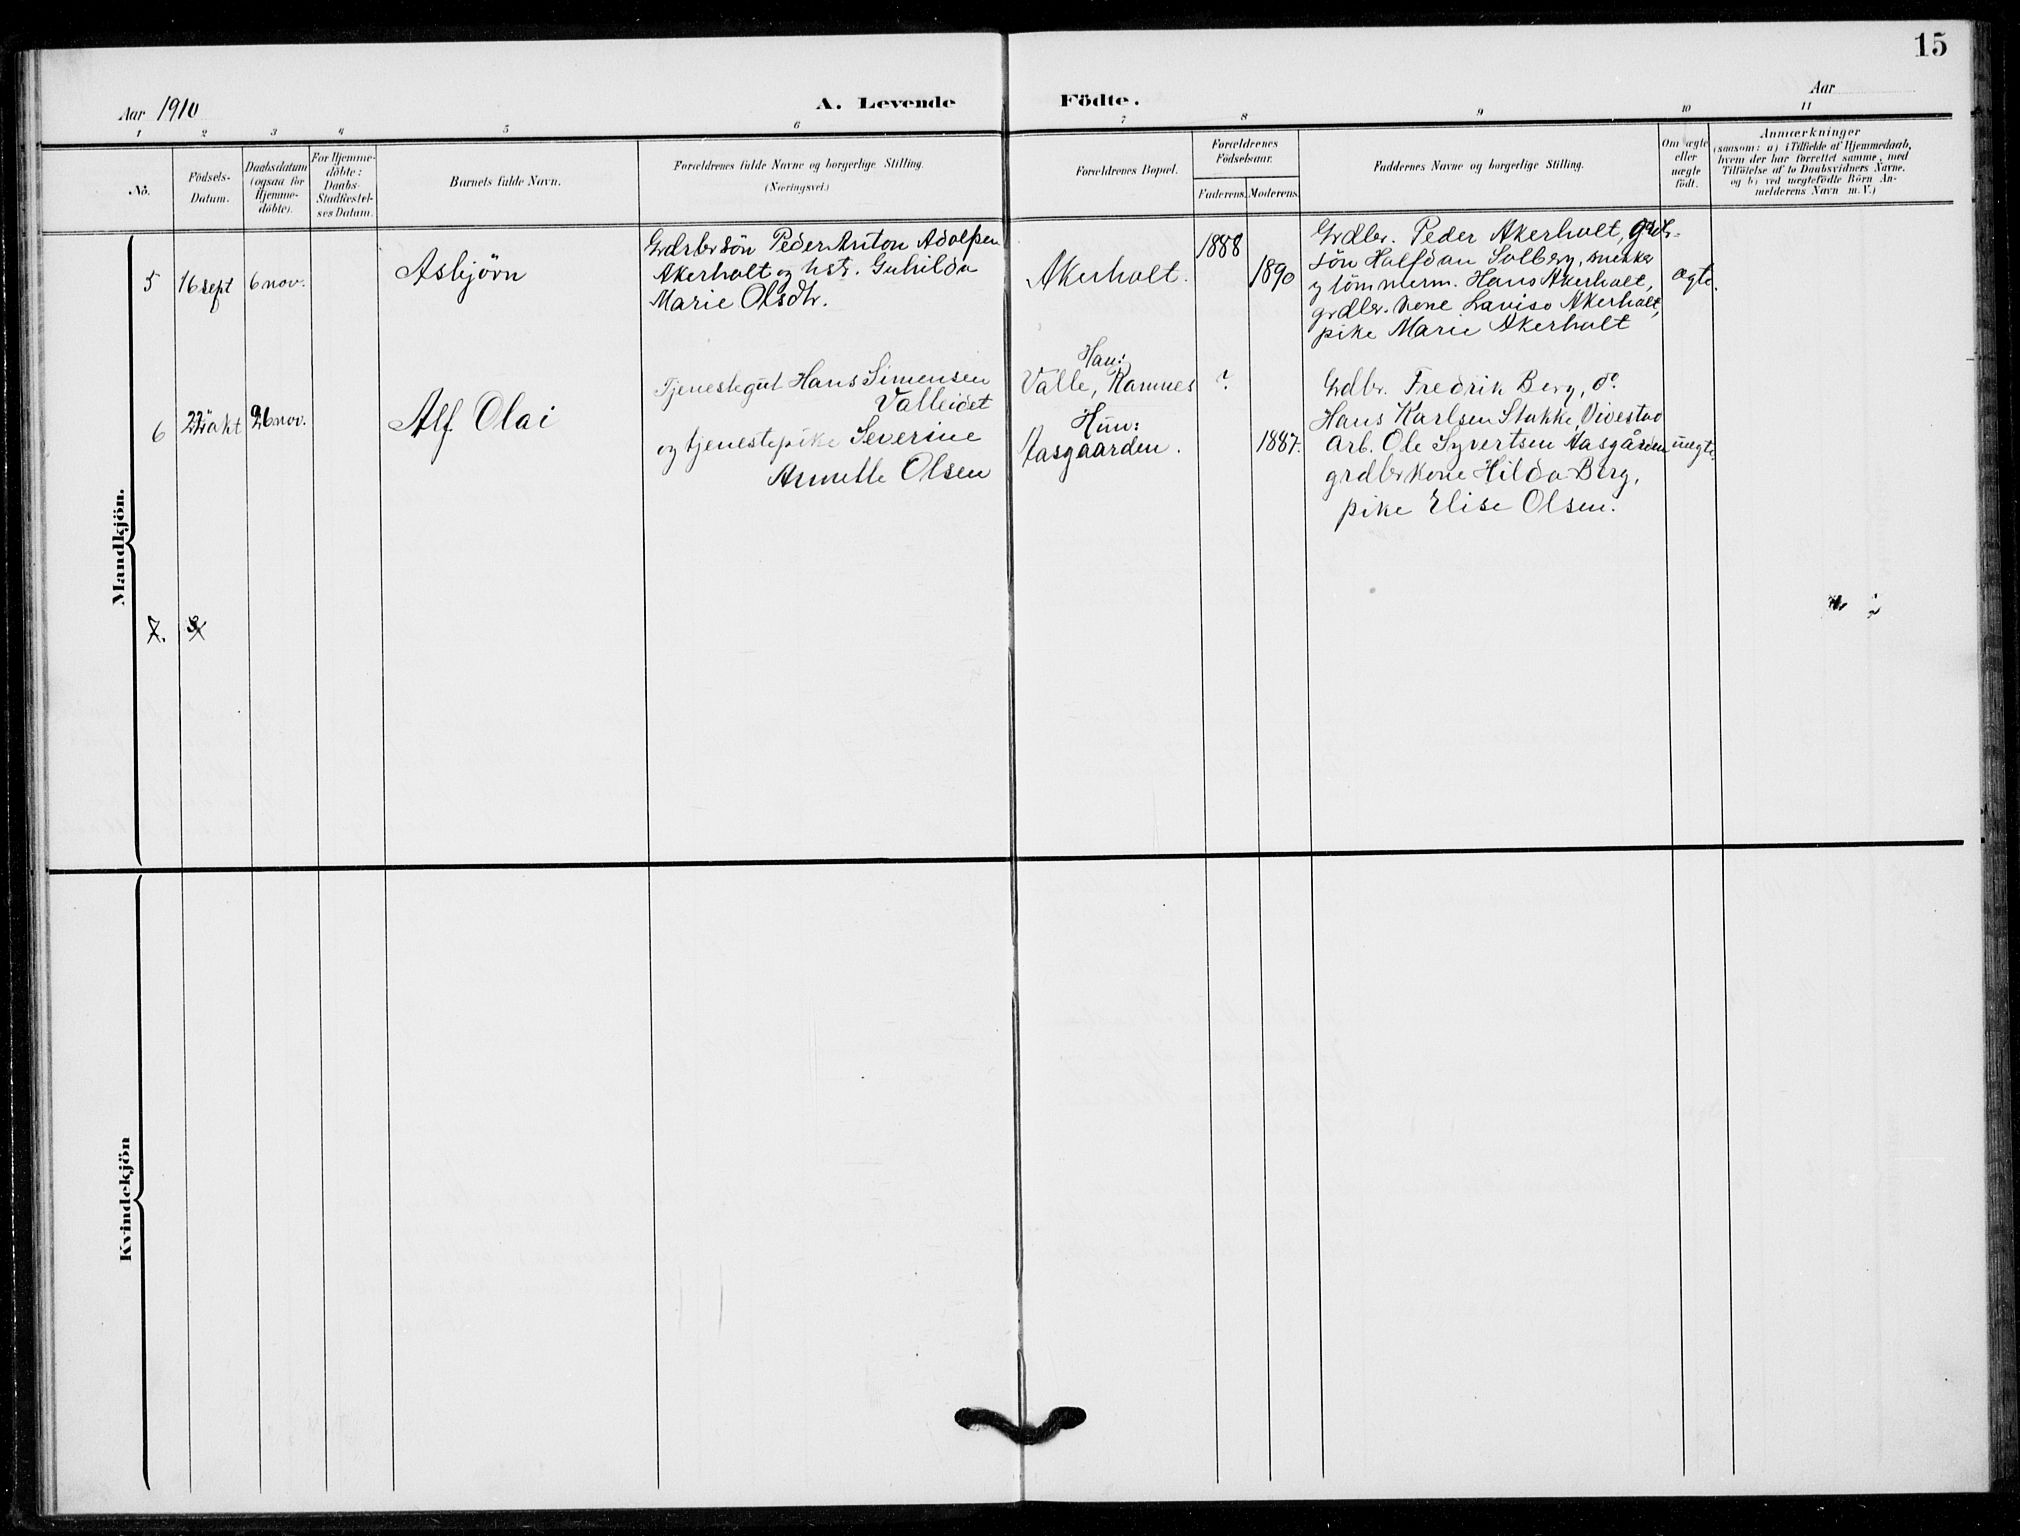 15
Aar 1910
A. Levende Födte.
Aar
1 2 3 4 5 6 7 8 9 10 11
No.
Födsels-
Datum.
Daabsdatum
(ogsaa for
Hjemme-
döbte).
For Hjemme-
döbte:
Daabs-
Stadfæstel-
ses Datum.
Barnets fulde Navn.
Forældrenes fulde Navne og borgerlige Stilling.
(Næringsvei.)
Forældrenes Bopæl.
Forældrenes
Födselsaar.
Faderens. Moderens.
Faddernes Navne og borgerlige Stilling.
Om ægte
eller
uægte
födt.
Anmærkninger
(saasom: a) i Tilfælde af Hjemmedaab,
hvem der har forrettet samme, med
Tilföielse af to Daabsvidners Navne,
og b) ved uægtefödte Börn An-
melderens Navn m. V.)
Mandkjön.
5
16 sept
6 nov.
Asbjørn
Grdbrsön Peder Anton Adolfsen
Akerholt og hstr. Guhilda
Marie Olsdtr.
Akerholt.
1888
1890
Grdbr. Peder Akerholt, grdbr-
sön Halfdan Solberg, snekker
og tömmerm. Hans Akerholt,
grdbr. kone Lovise Akerholt,
pike Marie Akerholt
ægte.
6
okt
26 nov.
Alf Olai
Tjenestegut Hans Simensen
Valleidet
og tjenestepike Severine
Annette Olsen
Han:
Valle, Ramnes
Hun:
Aasgaarden.
?
1887.
Grdbr. Fredrik Berg, do
Hans Karlsen Stokke, Vivestad
Arb. Ole Syvertsen Aasgården
grdbrkone Hilda Berg,
pike Elise Olsen.
uægte.
7.
Kvindekjön